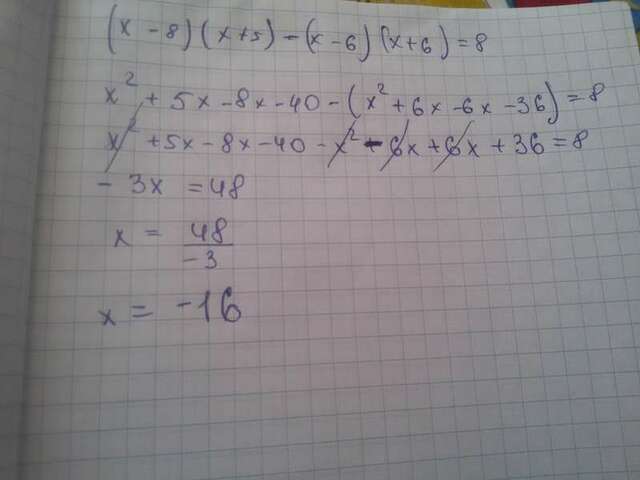 (x - 8)(x+5) - (x - 6)(x+6) = 8
x² + 5x - 8x - 40 - (x² + 6x - 6x - 36) = 8
x² + 5x - 8x - 40 - x² - 6x + 6x + 36 = 8
- 3x = 48
x = 48/-3
x = -16